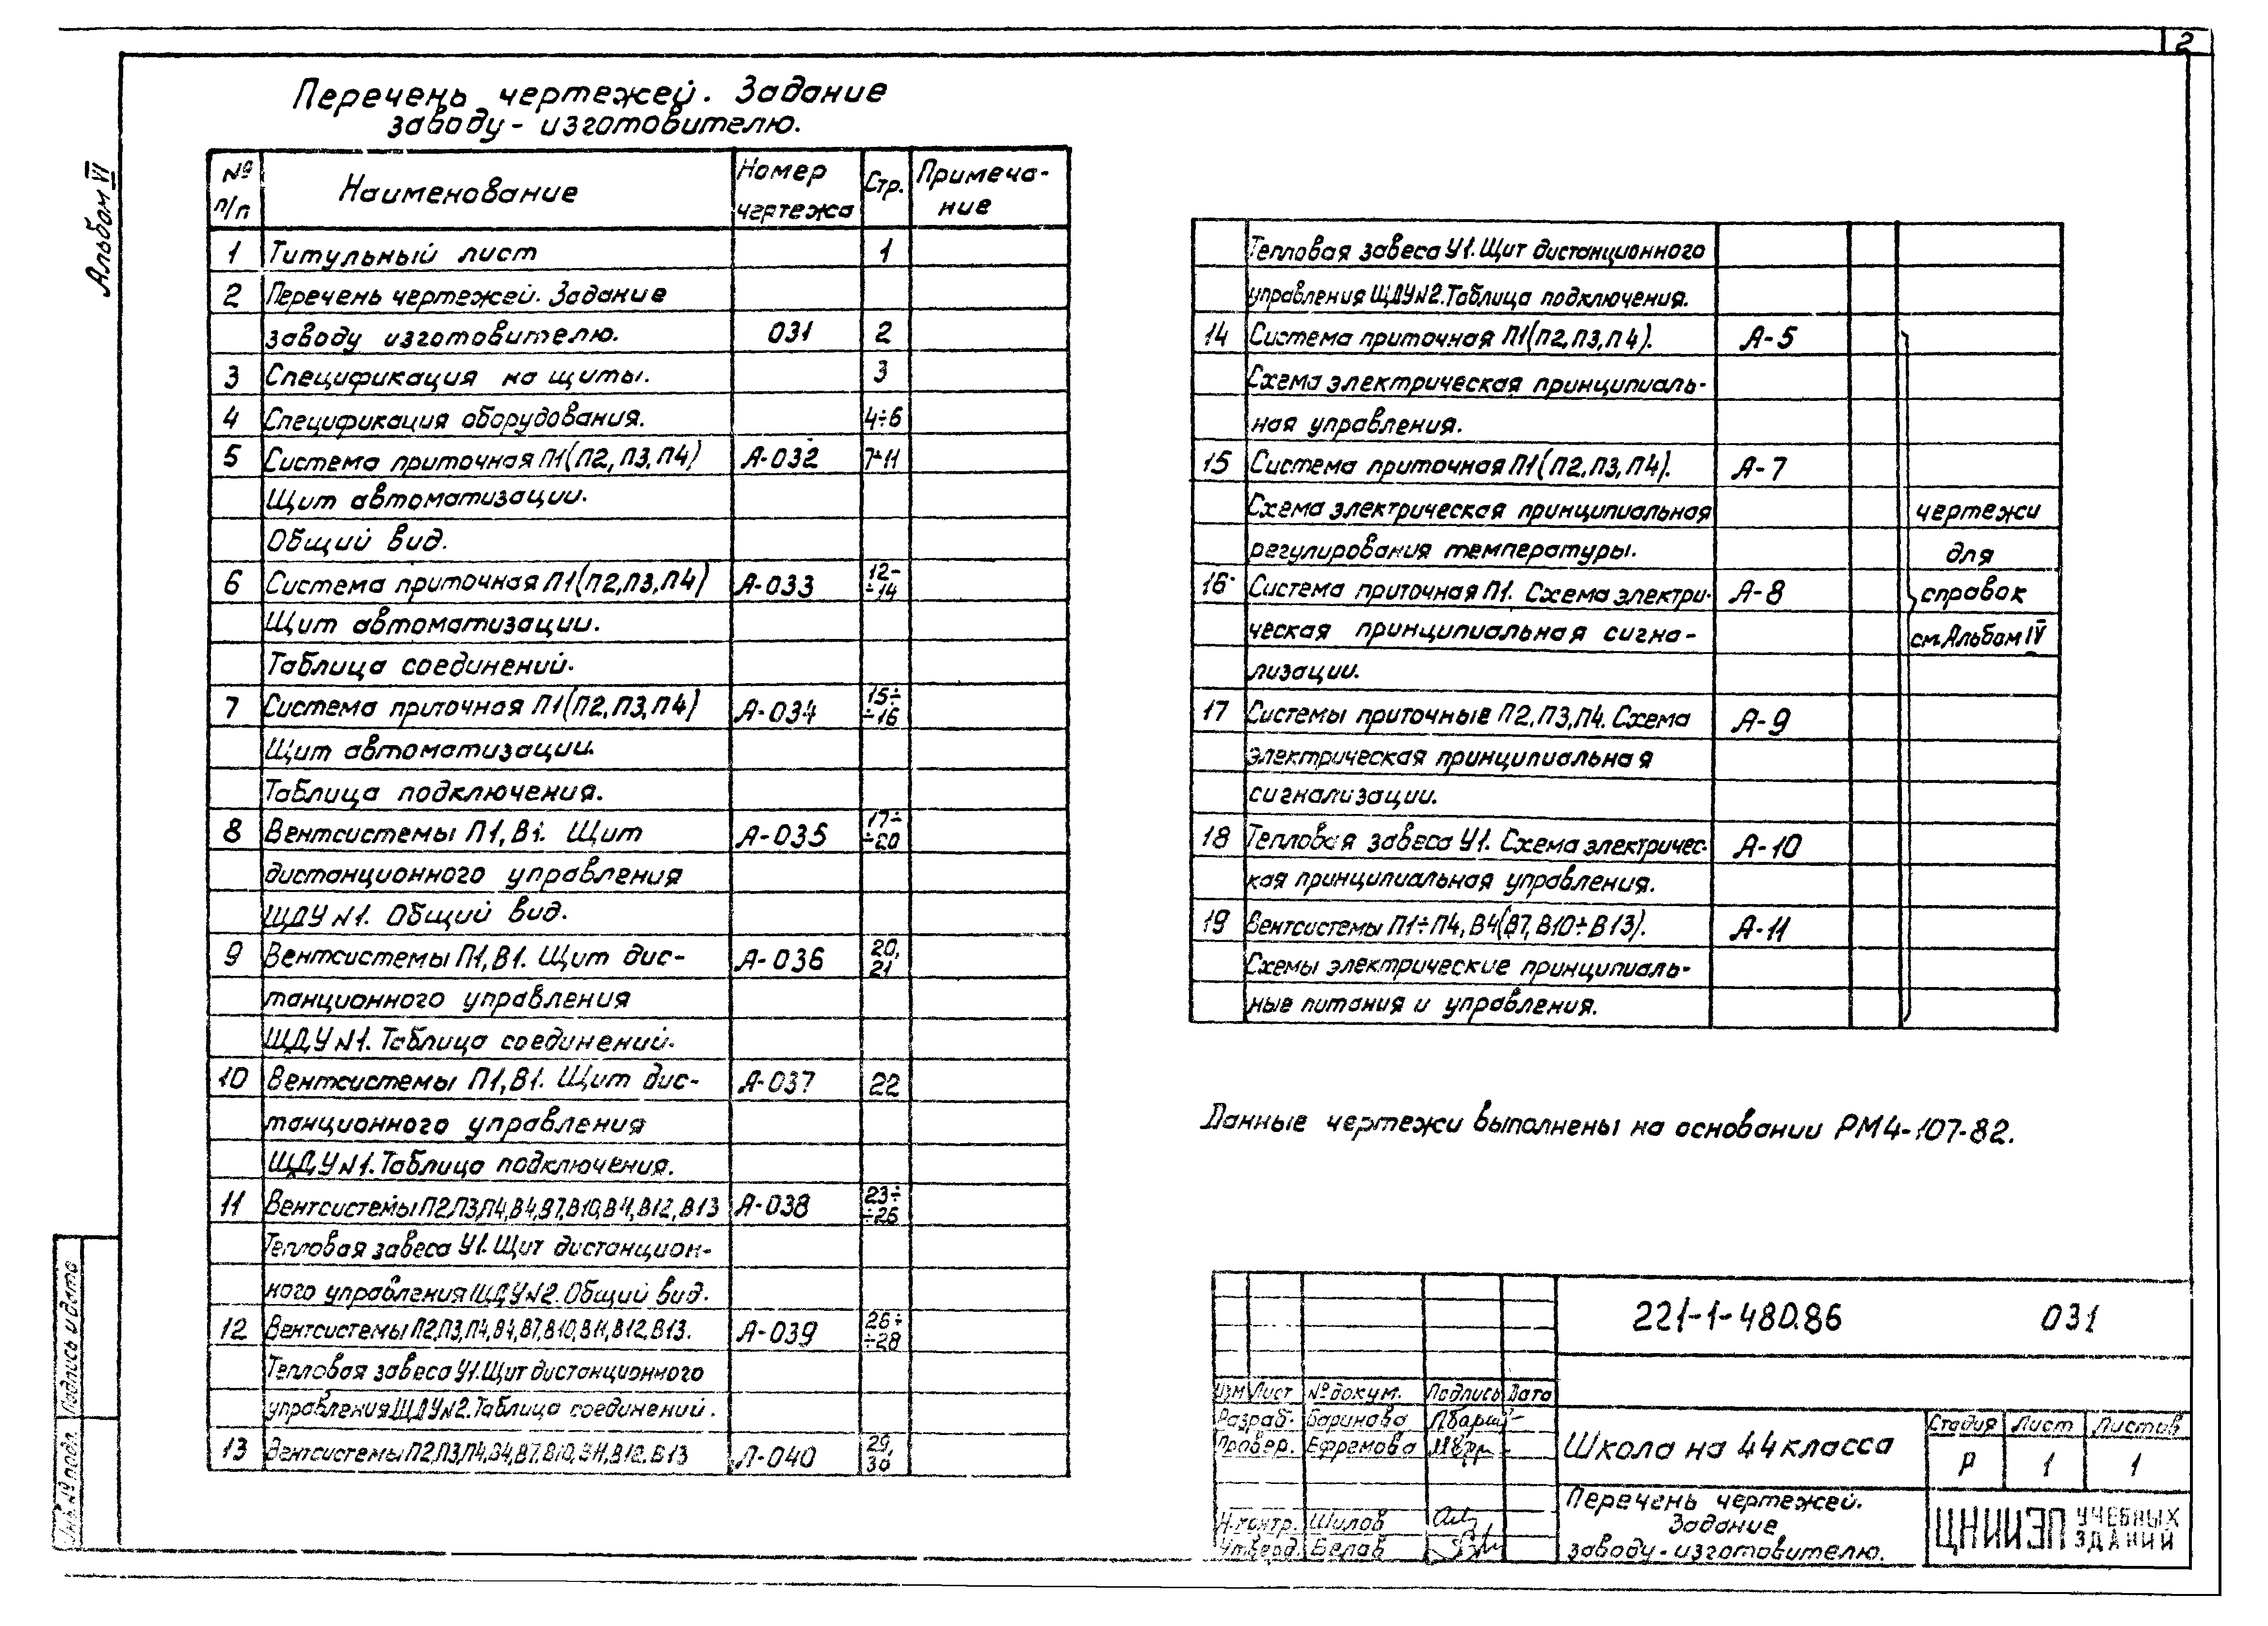 2
Альбом VI
Перечень чертежей. Задание
заводу-изготовителю.
№ п/п Наименование Номер чертежа Стр. Примечание
1 Титульный лист 1
2 Перечень чертежей. Задание
заводу изготовителю. 031 2
3 Спецификация на щиты. 3
4 Спецификация оборудования. 4÷6
5 Система приточная П1(П2, П3, П4) А-032 7÷11
Щит автоматизации.
Общий вид.
6 Система приточная П1(П2,П3,П4) А-033 12÷ ÷14
Щит автоматизации.
Таблица соединений.
7 Система приточная П1(П2,П3,П4) А-034 15÷ ÷16
Щит автоматизации.
Таблица подключения.
8 Вентсистемы П1, В1. Щит А-035 17÷ ÷20
дистанционного управления
ЩДУ N1. Общий вид.
9 Вентсистемы П1, В1. Щит дис- А-036 20, 21
танционного управления
ЩДУ N1. Таблица соединений.
10 Вентсистемы П1, В1. Щит дис- А-037 22
танционного управления
ЩДУ N1. Таблица подключения.
11 Вентсистемы П2,П3,П4,В4,В7,В10,В11,В12,В13 А-038 23÷ ÷26
Тепловая завеса У1. Щит дистанцион-
ного управления ЩДУ N2. Общий вид.
12 Вентсистемы П2,П3,П4,В4,В7,В10,В11,В12,В13. А-039 26÷ ÷28
Тепловая завеса У1. Щит дистанционного
управления ЩДУ N2. Таблица соединений.
13 Вентсистемы П2,П3,П4,В4,В7,В10,В11,В12,В13 А-040 29, 30
Тепловая завеса У1. Щит дистанционного
управления ЩДУ N2. Таблица подключения.
14 Система приточная П1(П2,П3,П4). А-5
Схема электрическая принципиаль-
ная управления.
15 Система приточная П1(П2,П3,П4). А-7
Схема электрическая принципиальная
регулирования температуры.
16 Система приточная П1. Схема электри- А-8
ческая принципиальная сигна-
лизации.
17 Системы приточные П2,П3,П4. Схема А-9
электрическая принципиальная
сигнализации.
18 Тепловая завеса У1. Схема электричес- А-10
кая принципиальная управления.
19 Вентсистемы П1÷П4, В4(В7, В10÷В13). А-11
Схемы электрические принципиаль-
ные питания и управления.
чертежи
для
справок
см. Альбом IV
Данные чертежи выполнены на основании РМ4-107-82.
221-1-480.86 031
Изм Лист № докум. Подпись Дата
Разраб. Баринова
Провер. Ефремова
Н.контр. Шилов
Утверд. Белов
Школа на 44 класса
Стадия Лист Листов
Р 1 1
Перечень чертежей.
Задание
заводу-изготовителю.
ЦНИИЭП УЧЕБНЫХ ЗДАНИЙ
Инв. № подл. Подпись и дата